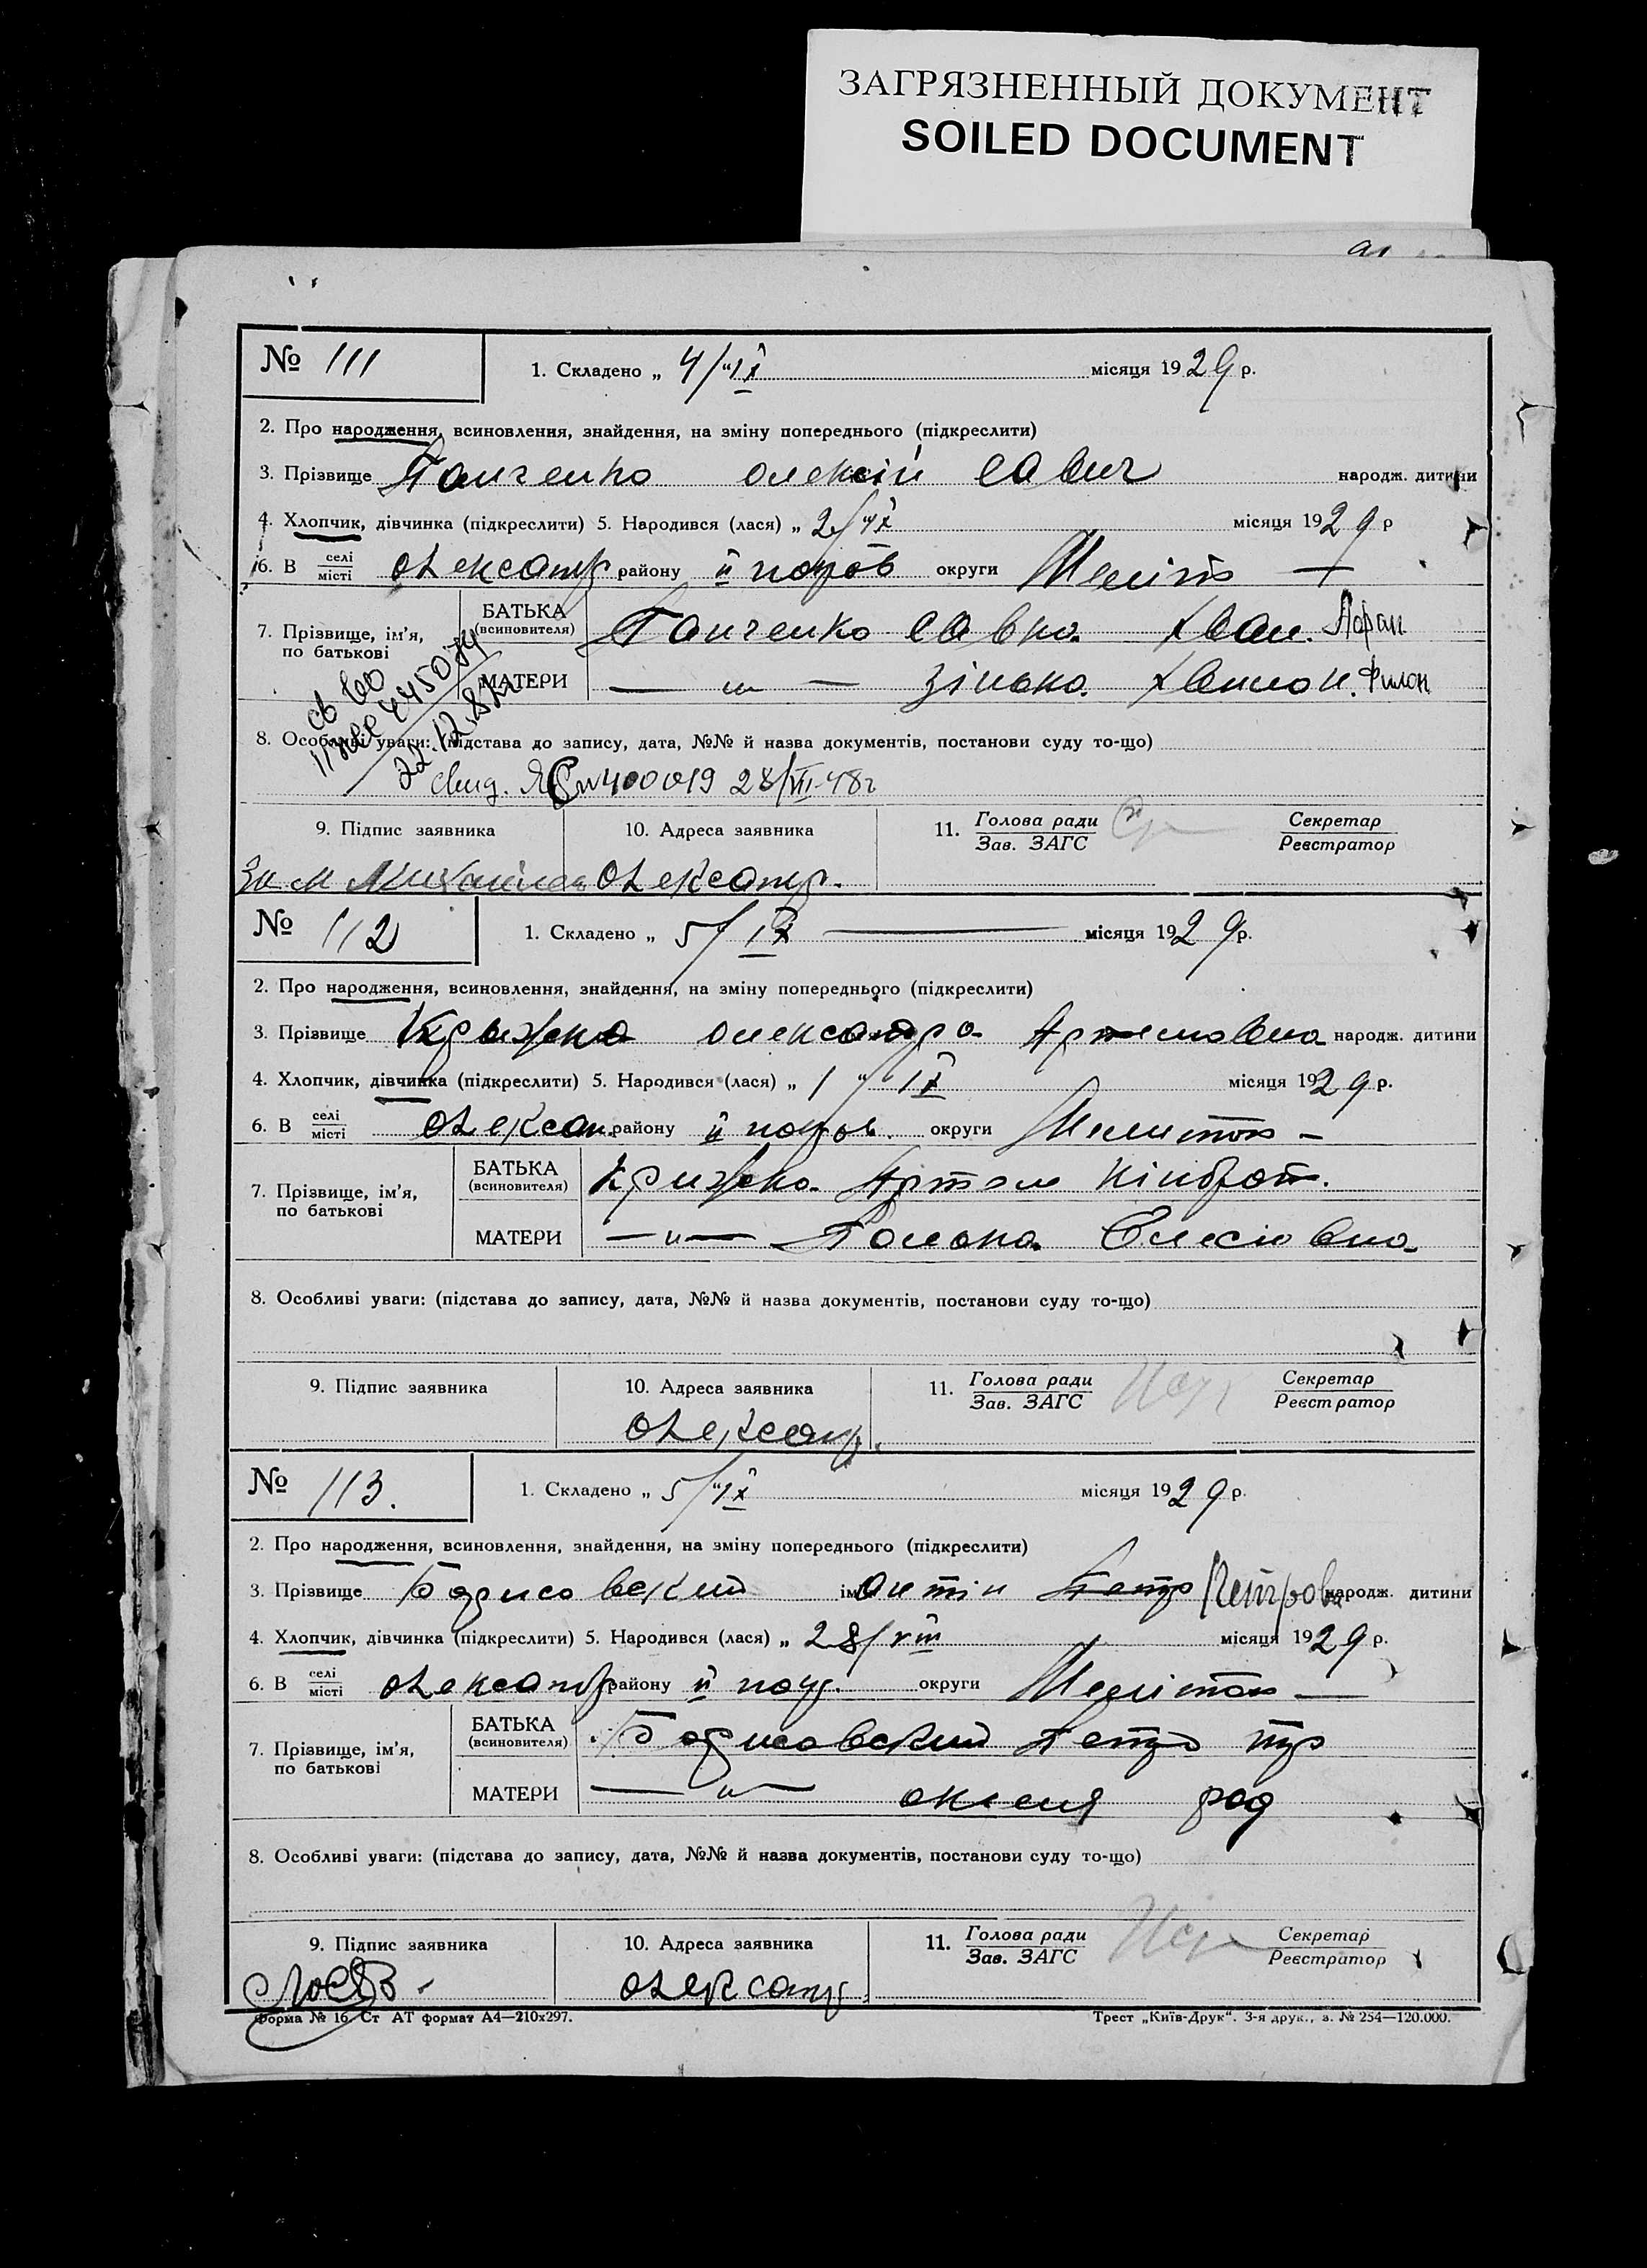 ЗАГРЯЗНЕННЫЙ ДОКУМЕНТ
SOILED DOCUMENT
№ 111
1. Складено „ 4/"IX місяця 1929 р.
2. Про народження, всиновлення, знайдення, на зміну попереднього (підкреслити)
3. Прізвище Панченко олексій Савич народж. дитини
4. Хлопчик, дівчинка (підкреслити) 5. Народився (лася) „ 2/"IX місяця 1929 р
6. В селі/місті Олександр району II покров округи Меліт —
7. Прізвище, ім'я, по батькові
БАТЬКА (всиновителя) Панченко Савка Іван.
МАТЕРИ — „ — Зінька Филон
8. Особливі уваги: (підстава до запису, дата, №№ й назва документів, постанови суду то-що)
400019 28/VII-48г
9. Підпис заявника
10. Адреса заявника
11. Голова ради/Зав. ЗАГС
Секретар/Реєстратор
Олександр.
№ 112
1. Складено „ 5/" IX — місяця 1929р.
2. Про народження, всиновлення, знайдення, на зміну попереднього (підкреслити)
3. Прізвище Крыжко олександра Артемовна народж. дитини
4. Хлопчик, дівчинка (підкреслити) 5. Народився (лася) „ 1 " IX місяця 1929 р.
6. В селі/місті Олексан. району II покров. округи Мелитоп —
7. Прізвище, ім'я, по батькові
БАТЬКА (всиновителя) Крижко Артем Кіндрат.
МАТЕРИ — „ —
8. Особливі уваги: (підстава до запису, дата, №№ й назва документів, постанови суду то-що)
9. Підпис заявника
10. Адреса заявника
11. Голова ради/Зав. ЗАГС
Секретар/Реєстратор
Олександр.
№ 113.
1. Складено „ 5/"IX місяця 1929 р.
2. Про народження, всиновлення, знайдення, на зміну попереднього (підкреслити)
3. Прізвище Борисовский ім. Антін Петр Петров народж. дитини
4. Хлопчик, дівчинка (підкреслити) 5. Народився (лася) „ 28/VIII місяця 1929 р.
6. В селі/місті Олександр району II покр. округи Мелітоп —
7. Прізвище, ім'я, по батькові
БАТЬКА (всиновителя) Борисовский Петро
МАТЕРИ — „ —
8. Особливі уваги: (підстава до запису, дата, №№ й назва документів, постанови суду то-що)
9. Підпис заявника
10. Адреса заявника
11. Голова ради/Зав. ЗАГС
Секретар/Реєстратор
Олександр
Форма № 16. Ст АТ формат А4—210х297.
Трест „Київ-Друк“. 3-я друк., з. № 254—120.000.